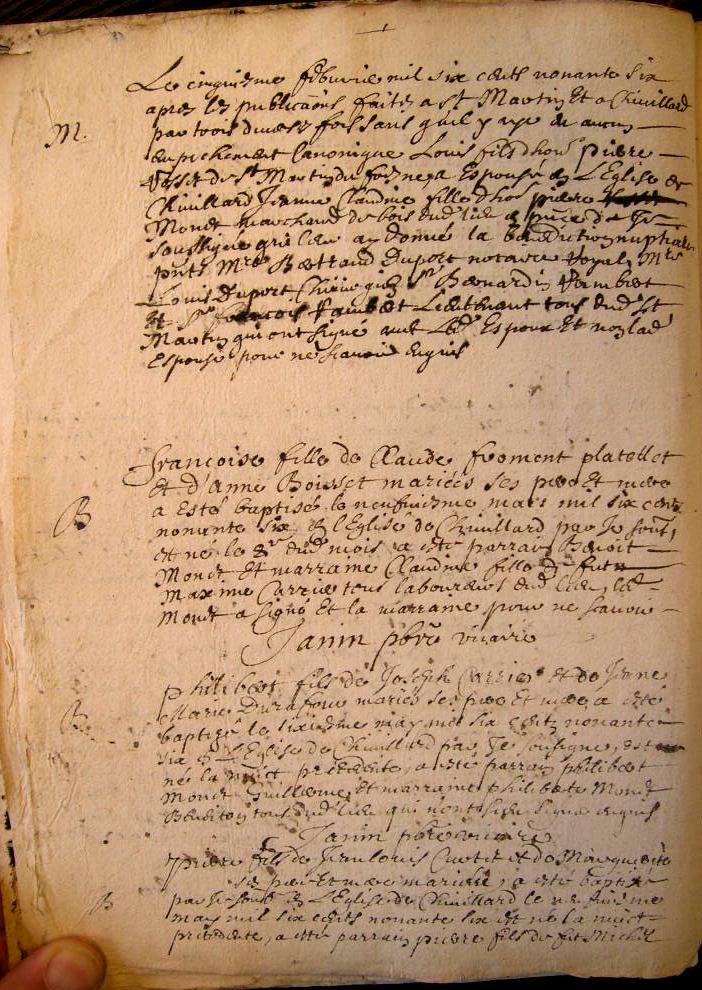 Le cinquiesme febvrie mil six cents nonante six
apres les publicaons faites a st Martin Et a Chivillard
M.
par trois divers fois sans quil y aye eu aucun
empechement Canonique Louis fils d'hon Pierre
de st Martin du fresne a Espousé en L'Eglise de
Chivillard Jeanne Claudine fille d'hon pierre
Monet marchand de bois dud lieu en
soussigné qui leur ay donné la benediction nuptiale
pnts Mre Bertrand Duport notaire Royal, Mre
Louis Duport Chirurgien Sr Bernardin Rambert
et Sr francois Rambert Lieutenant tous dud St
Martin qui ont signé avec Led Espoux Et non lad
Espouse pour ne scavoir enquis
Francoise fille de Claude froment platellet
Et d'Anne Boisset mariées ses pere et mere
B
a Esté baptisé le neufuiesme mars mil six cents
nonante six en l'Eglise de Chivillard par Je sousse
et né le 8e dud mois a esté parrain Benoit
Monet et marrame Claudine fille de fut
Maxime Carrier tous laboureurs dud lieu, led
Monet a signé Et la marrame pour ne scavoir
Janin pbre vicaire
philibert fils de Joseph Carrier et de Jeanne
Marie Durafour mariés ses pere et mere a esté
B
baptisé le sixiesme may mil six cents nonante
six en L'Eglise de Chivillard par Je soussigné, est
né la nuict precedente, a esté parrain philibert
Monet Guillerme, et marrame philiberte Monet
tous dud lieu qui n'ont signé enquis
Janin pbre vicaire
pierre fils de Jean louis et de Marguerite
ses pere Et mere mariés, a esté baptisé
B
par Je sousse en L'Eglise de Chivillard le neufuiesme
may mil six cents nonante six et né la nuict
precedente, a esté parrain pierre fils de fut Michel